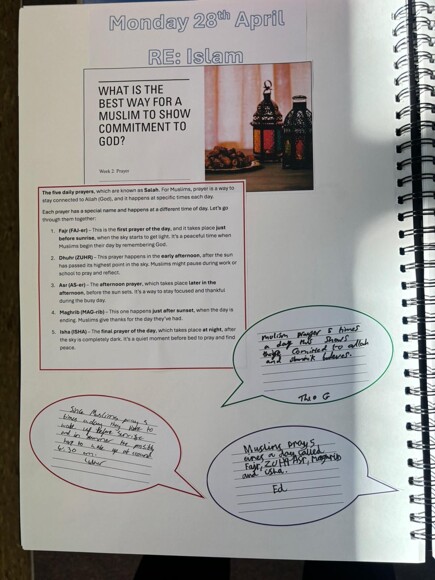 Monday 28th April
RE: Islam
WHAT IS THE
BEST WAY FOR A
MUSLIM TO SHOW
COMMITMENT TO
GOD?
Week 2: Prayer
The five daily prayers, which are known as Salah. For Muslims, prayer is a way to
stay connected to Allah (God), and it happens at specific times each day.
Each prayer has a special name and happens at a different time of day. Let's go
through them together:
1. Fajr (FAJ-er) - This is the first prayer of the day, and it takes place just
before sunrise, when the sky starts to get light. It's a peaceful time when
Muslims begin their day by remembering God.
2. Dhuhr (ZUHR) - This prayer happens in the early afternoon, after the sun
has passed its highest point in the sky. Muslims might pause during work or
school to pray and reflect.
3. Asr (AS-er) - The afternoon prayer, which takes place later in the
afternoon, before the sun sets. It's a way to stay focused and thankful
during the busy day.
4. Maghrib (MAG-rib) - This one happens just after sunset, when the day is
ending. Muslims give thanks for the day they've had.
5. Isha (ISHA) - The final prayer of the day, which takes place at night, after
the sky is completely dark. It's a quiet moment before bed to pray and find
peace.
5 times
a day this shows
to allah
and
Theo G
Muslims pray 5
times a day
wake up before
and in summer the
have to wake up at
Muslims pray 5
a day called
Fajr, Asr, Maghrib
and isha.
Ed